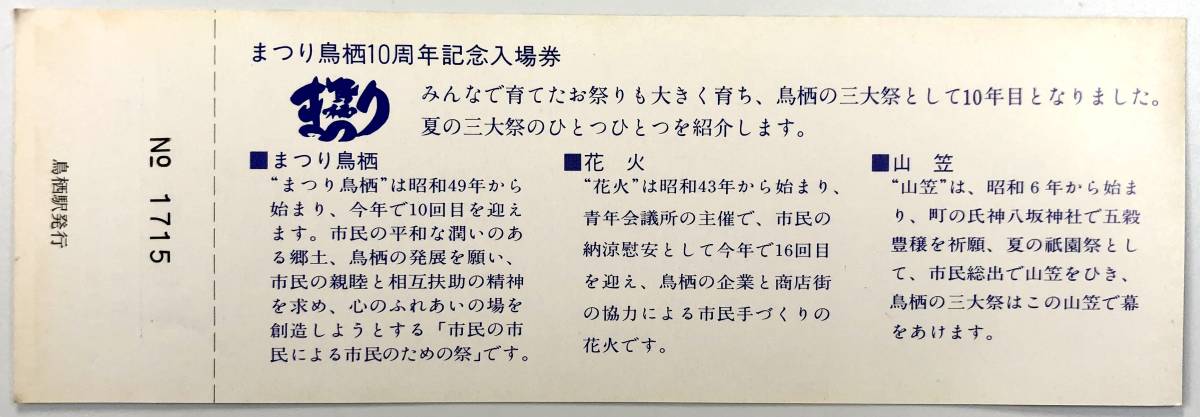 まつり鳥栖10周年記念入場券
鳥栖まつり
みんなで育てたお祭りも大きく育ち、鳥栖の三大祭として10年目となりました。
夏の三大祭のひとつひとつを紹介します。
■まつり鳥栖
“まつり鳥栖”は昭和49年から
始まり、今年で10回目を迎え
ます。市民の平和な潤いのあ
る郷土、鳥栖の発展を願い、
市民の親睦と相互扶助の精神
を求め、心のふれあいの場を
創造しようとする「市民の市
民による市民のための祭」です。
■花　火
“花火”は昭和43年から始まり、
青年会議所の主催で、市民の
納涼慰安として今年で16回目
を迎え、鳥栖の企業と商店街
の協力による市民手づくりの
花火です。
■山　笠
“山笠”は、昭和6年から始ま
り、町の氏神八坂神社で五穀
豊穣を祈願、夏の祇園祭とし
て、市民総出で山笠をひき、
鳥栖の三大祭はこの山笠で幕
をあけます。
№ 1715
鳥栖駅発行